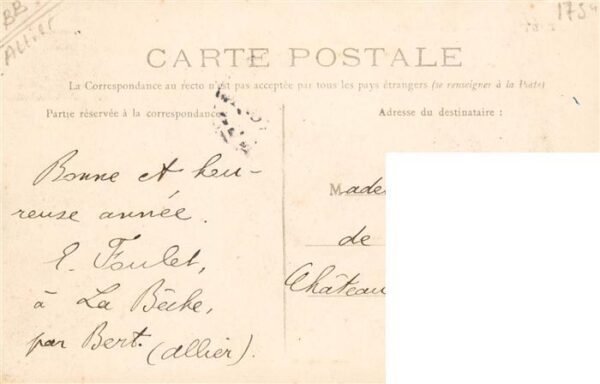 BB
Allier
1754
CARTE POSTALE
La Correspondance au recto n'est pas acceptée par tous les pays étrangers (se renseigner à la Poste)
Partie réservée à la correspondance
Bonne et heu-
reuse année.
E. Foulet,
à La Bêche,
par Bert. (Allier).
Adresse du destinataire :
Made
de
Château